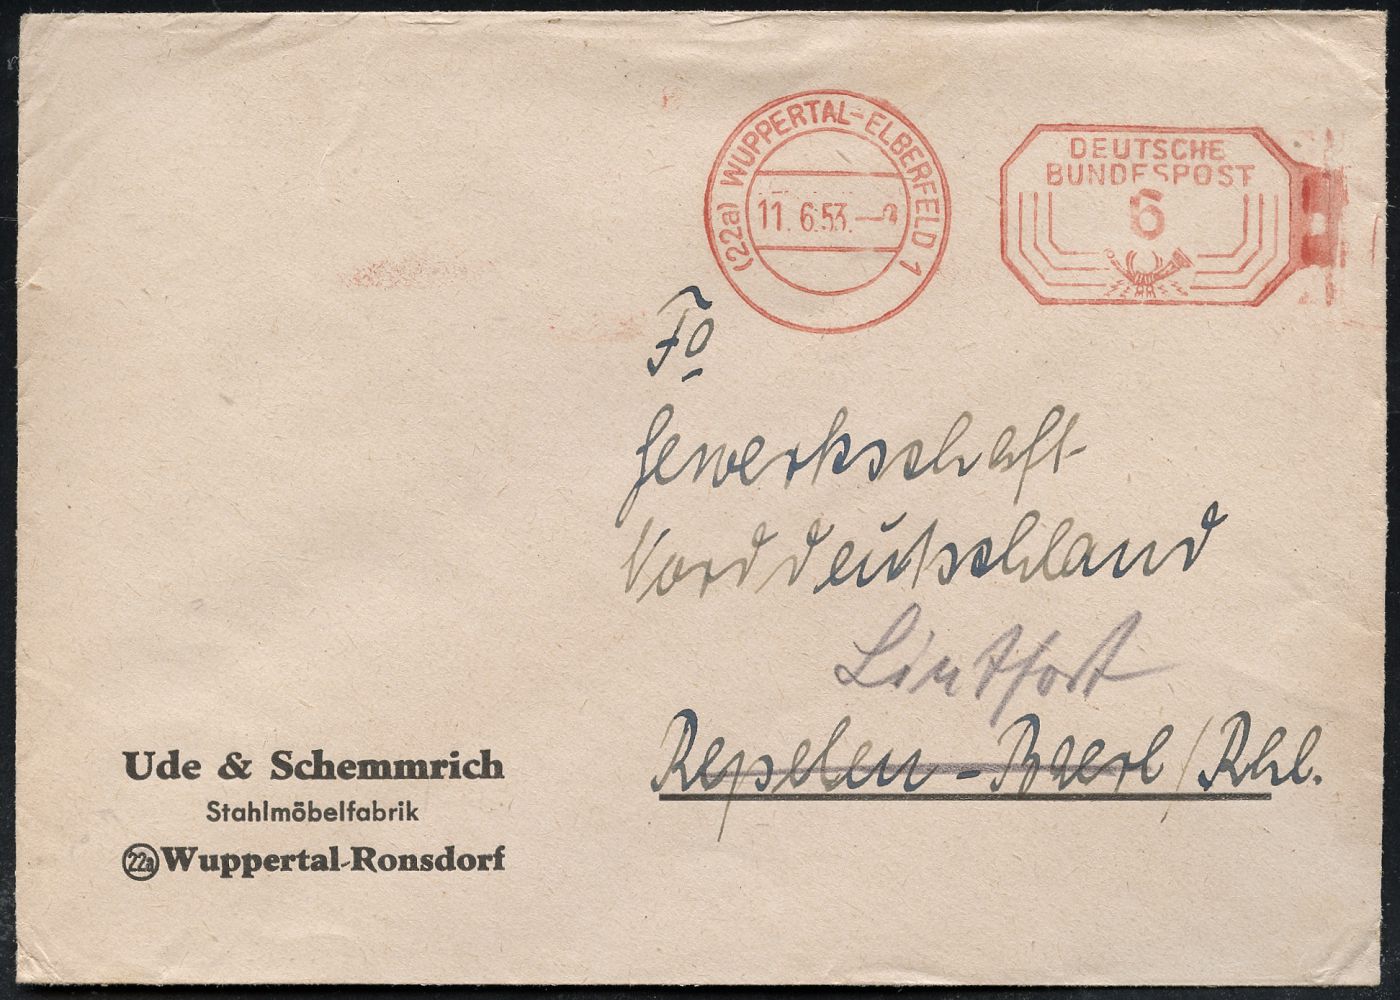 (22a) WUPPERTAL-ELBERFELD 1
11. 6.53.
DEUTSCHE
BUNDESPOST
6
Fa
Gewerkschaft
Norddeutschland
Lintfort
Repelen-Baerl/Rhl.
Ude & Schemmrich
Stahlmöbelfabrik
22a Wuppertal-Ronsdorf